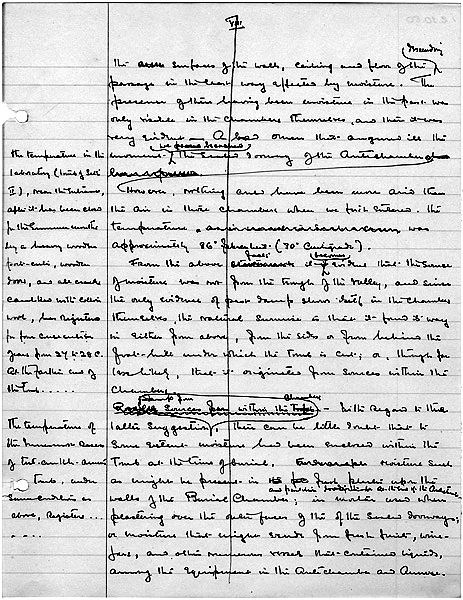 VIII
descending
the surfaces of the walls, ceiling and floor of the
passage in the least way affected by moisture. The
presence of there having been moisture in the past was
only visible in the Chambers themselves, and there it was
very evident — A bad omen that augured ill the
we passed
moment the Sealed doorway of the Antechamber
However, nothing could have been more arid than
the air in those Chambers when we first entered. The
temperature was
approximately 86° Fahrenheit (30° Centigrade).
facts becomes
From the above it evident that the source
of moisture was not from the trough of the valley, and since
the only evidence of past damp shows itself in the Chambers
themselves, the natural surmise is that it found its way
in either from above, from the sides or from behind the
foot-hill under which the tomb is cut; or, though far
less likely, that it originated from sources within the
Chambers.
Damp from Chamber
Possible Sources from within the Tomb — With regard to this
latter suggestion, there can be little doubt that to
some extent moisture had been enclosed within the
Tomb at the time of burial. moisture such
as might be present in the paint upon the
walls of the Burial Chamber; in mortar used when
plastering over the outer faces of the of the Sealed doorways;
or moisture that might exude from fresh fruit, wine-
jars, and other numerous vessels that contained liquids,
among the Equipment in the Antechamber and Annexe.
the temperature in the
laboratory (tomb of Seti
II), near the entrance,
after it has been closed
for the Summer months
by a heavy wooden
port-cullis, wooden
door, and all cracks
caulked with cotton
wool, has registered
for four consecutive
years from 27 to 28 C.
At the farther end of
the tomb.....
The temperature of
the innermost recess
of Tut.ankh.amun's
tomb, under
same conditions as
above, registers...
....